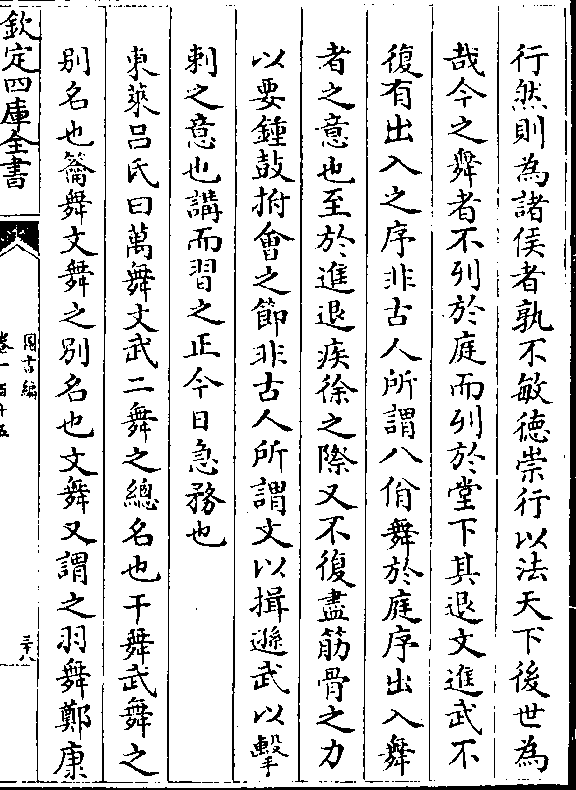 行然則為諸侯者孰不敏德崇行以法天下後世為
哉今之舞者不列於庭而列於堂下其退文進武不
復有出入之序非古人所謂八佾舞於庭序出入舞
者之意也至於進退疾徐之際又不復盡筋骨之力
以要鍾鼓拊會之節非古人所謂文以揖遜武以擊
刺之意也講而習之正今日急務也
東萊呂氏曰萬舞文武二舞之總名也干舞武舞之
别名也籥舞文舞之别名也文舞又謂之羽舞鄭康
欽定四庫全書
圖書編
卷一百十五
三十八